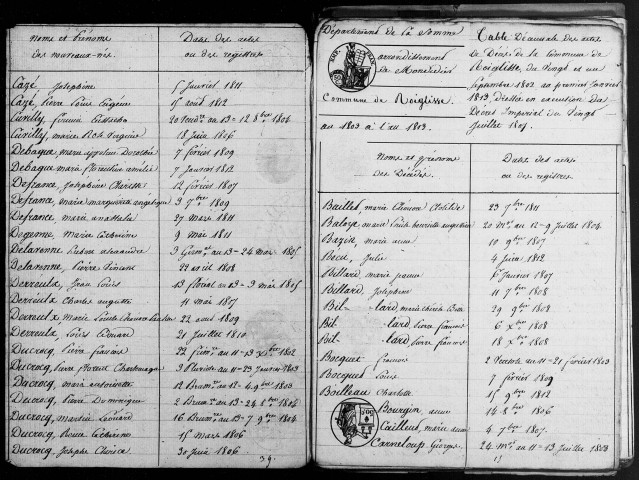 Noms et Prénoms
des nouveaux-nés.
Dates des actes
ou des registres
Cazé, Josephine 5 Janvier 1811
Cazé, Pierre Louis Eugène 15 août 1812
Curilly, 20 vend.re au 13 - 12 8bre 1804
Curilly, marie Rose 18 Juin 1806
Debague, marie Dorothée 7 février 1809
Debague, marie florentine amélie 7 Janvier 1812
Defrance, Josephine 12 février 1807
Defrance, marie marguerite angelique 3 7bre 1809
Defrance, marie anastasie 27 mars 1811
Degenne, Marie Catherine 9 mai 1811
Delarenne, Pierre alexandre 3 Germ.al au 13 - 24 mars 1805
Delarenne, Pierre Vincent 22 avril 1808
Devreulx, Jean Louis 13 floréal an 13 - 3 mai 1805
Devreulx, Charles auguste 11 mai 1807
Devreulx, Marie Louise 22 août 1809
Devreulx, Louis Edouard 21 Juillet 1810
Ducrocq, Pierre francois 22 frim.re an 11 - 13 Xbre 1802
Ducrocq, Pierre florent Charlemagne 3 Pluviôse an 11 - 23 Janvier 1803
Ducrocq, marie antoinette 12 Brum.re an 12 - 4 9bre 1803
Ducrocq, Pierre Dominique 2 Brum.re an 13 - 24 8bre 1804
Ducrocq, Martin Léonard 16 Brum.re an 13 - 7 9bre 1804
Ducrocq, Rosine Catherine 15 mars 1806
Ducrocq, Josephe 30 Juin 1806
39.
Département de la Somme
arrondissement
de Montdidier
Commune de Roiglise
an 1803 à l'an 1813.
Table Décennale des actes
de Décès de la Commune de
Roiglise, du Vingt et un
Septembre 1802 au premier Janvier
1813, dressée en execution du
Décret Impérial du Vingt
Juillet 1807.
Noms et prénoms
des Décédés.
Dates des actes
ou des registres
Baillet, marie Clotilde 23 7bre 1811
Baloye, marie Louise henriette augustine 20 M.or an 12 - 9 Juillet 1804.
Bazin, marie anne 10 9bre 1807
Becu, Julie 4 Juin 1812
Billard, marie jeanne 6 Janvier 1807
Billard, Josephine 11 7bre 1808
Bil-lard, marie thérèse 29 9bre 1808
Bil-lard, Pierre francois 6 Xbre 1808
Bil-lard, Pierre francois 18 Xbre 1808
Bocquet, francois 2 Ventose an 11 - 21 février 1803
Bocquet, Louis 7 février 1809
Boilleau, Charlotte 15 9bre 1812
Bourgin, anne 14 8bre 1806
Cailleux, marie anne 4 7bre 1807.
Carneloup, Georges 24 M.or an 11 - 13 Juillet 1803